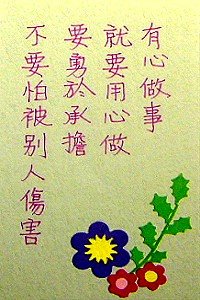 有心做事
就要用心做
要勇於承擔
不要怕被別人傷害